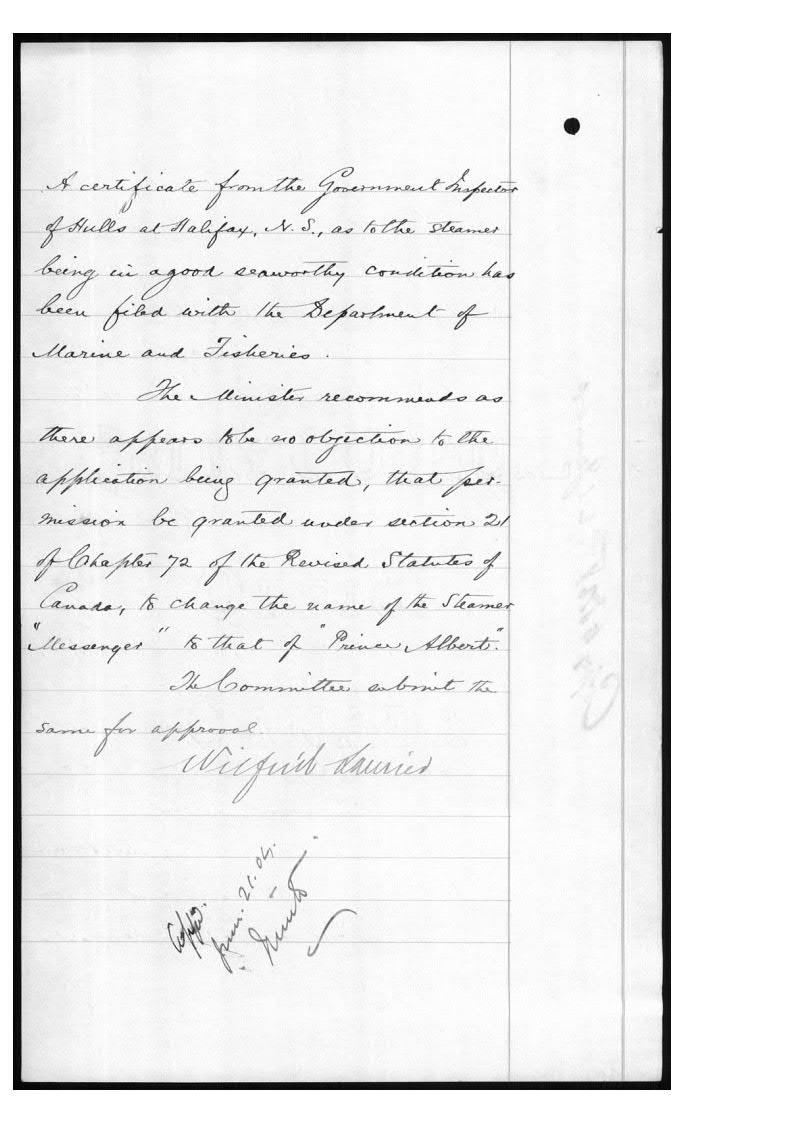 A certificate from the Government Inspector
of Hulls at Halifax, N.S., as to the steamer
being in a good seaworthy condition has
been filed with the Department of
Marine and Fisheries.
The Minister recommends as
there appears to be no objection to the
application being granted, that per-
mission be granted under section 21
of Chapter 72 of the Revised Statutes of
Canada, to change the name of the Steamer
"Messenger" to that of "Prince Albert".
The Committee submit the
same for approval.
Wilfrid Laurier
21.04.
Minto